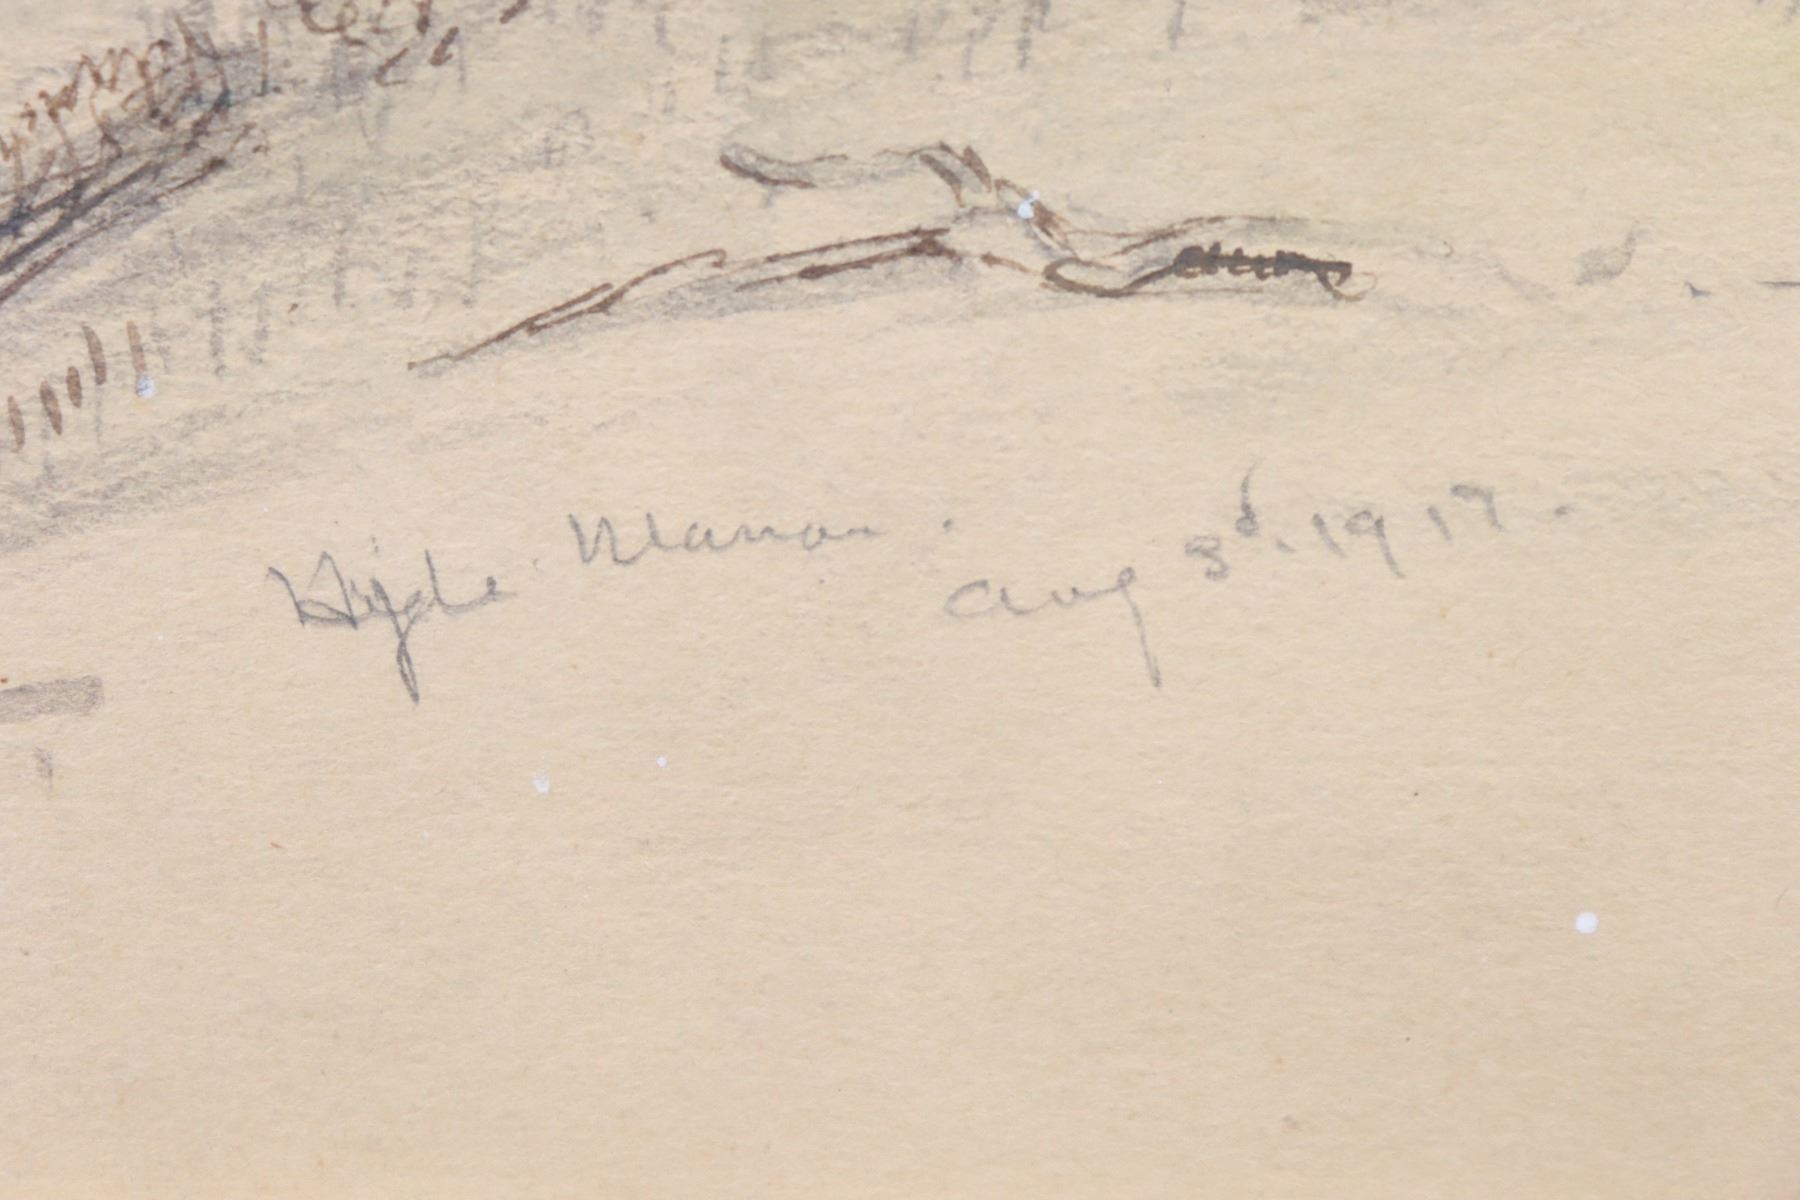 Hyde Manor. Aug 3d. 1917.